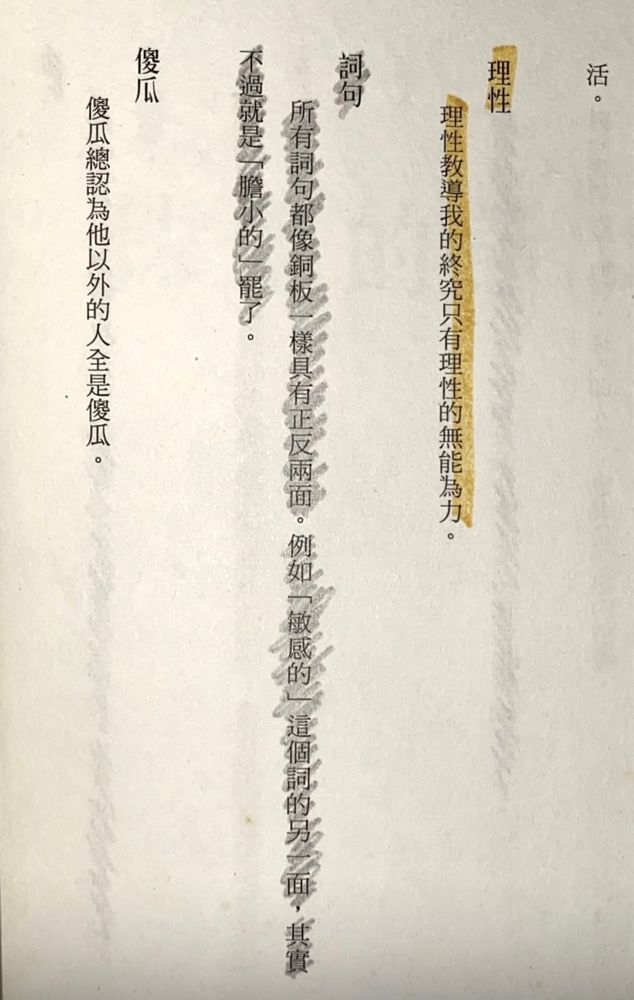 活。
理性
理性教導我的終究只有理性的無能為力。
詞句
所有詞句都像銅板一樣具有正反兩面。例如「敏感的」這個詞的另一面，其實
不過就是「膽小的」罷了。
傻瓜
傻瓜總認為他以外的人全是傻瓜。